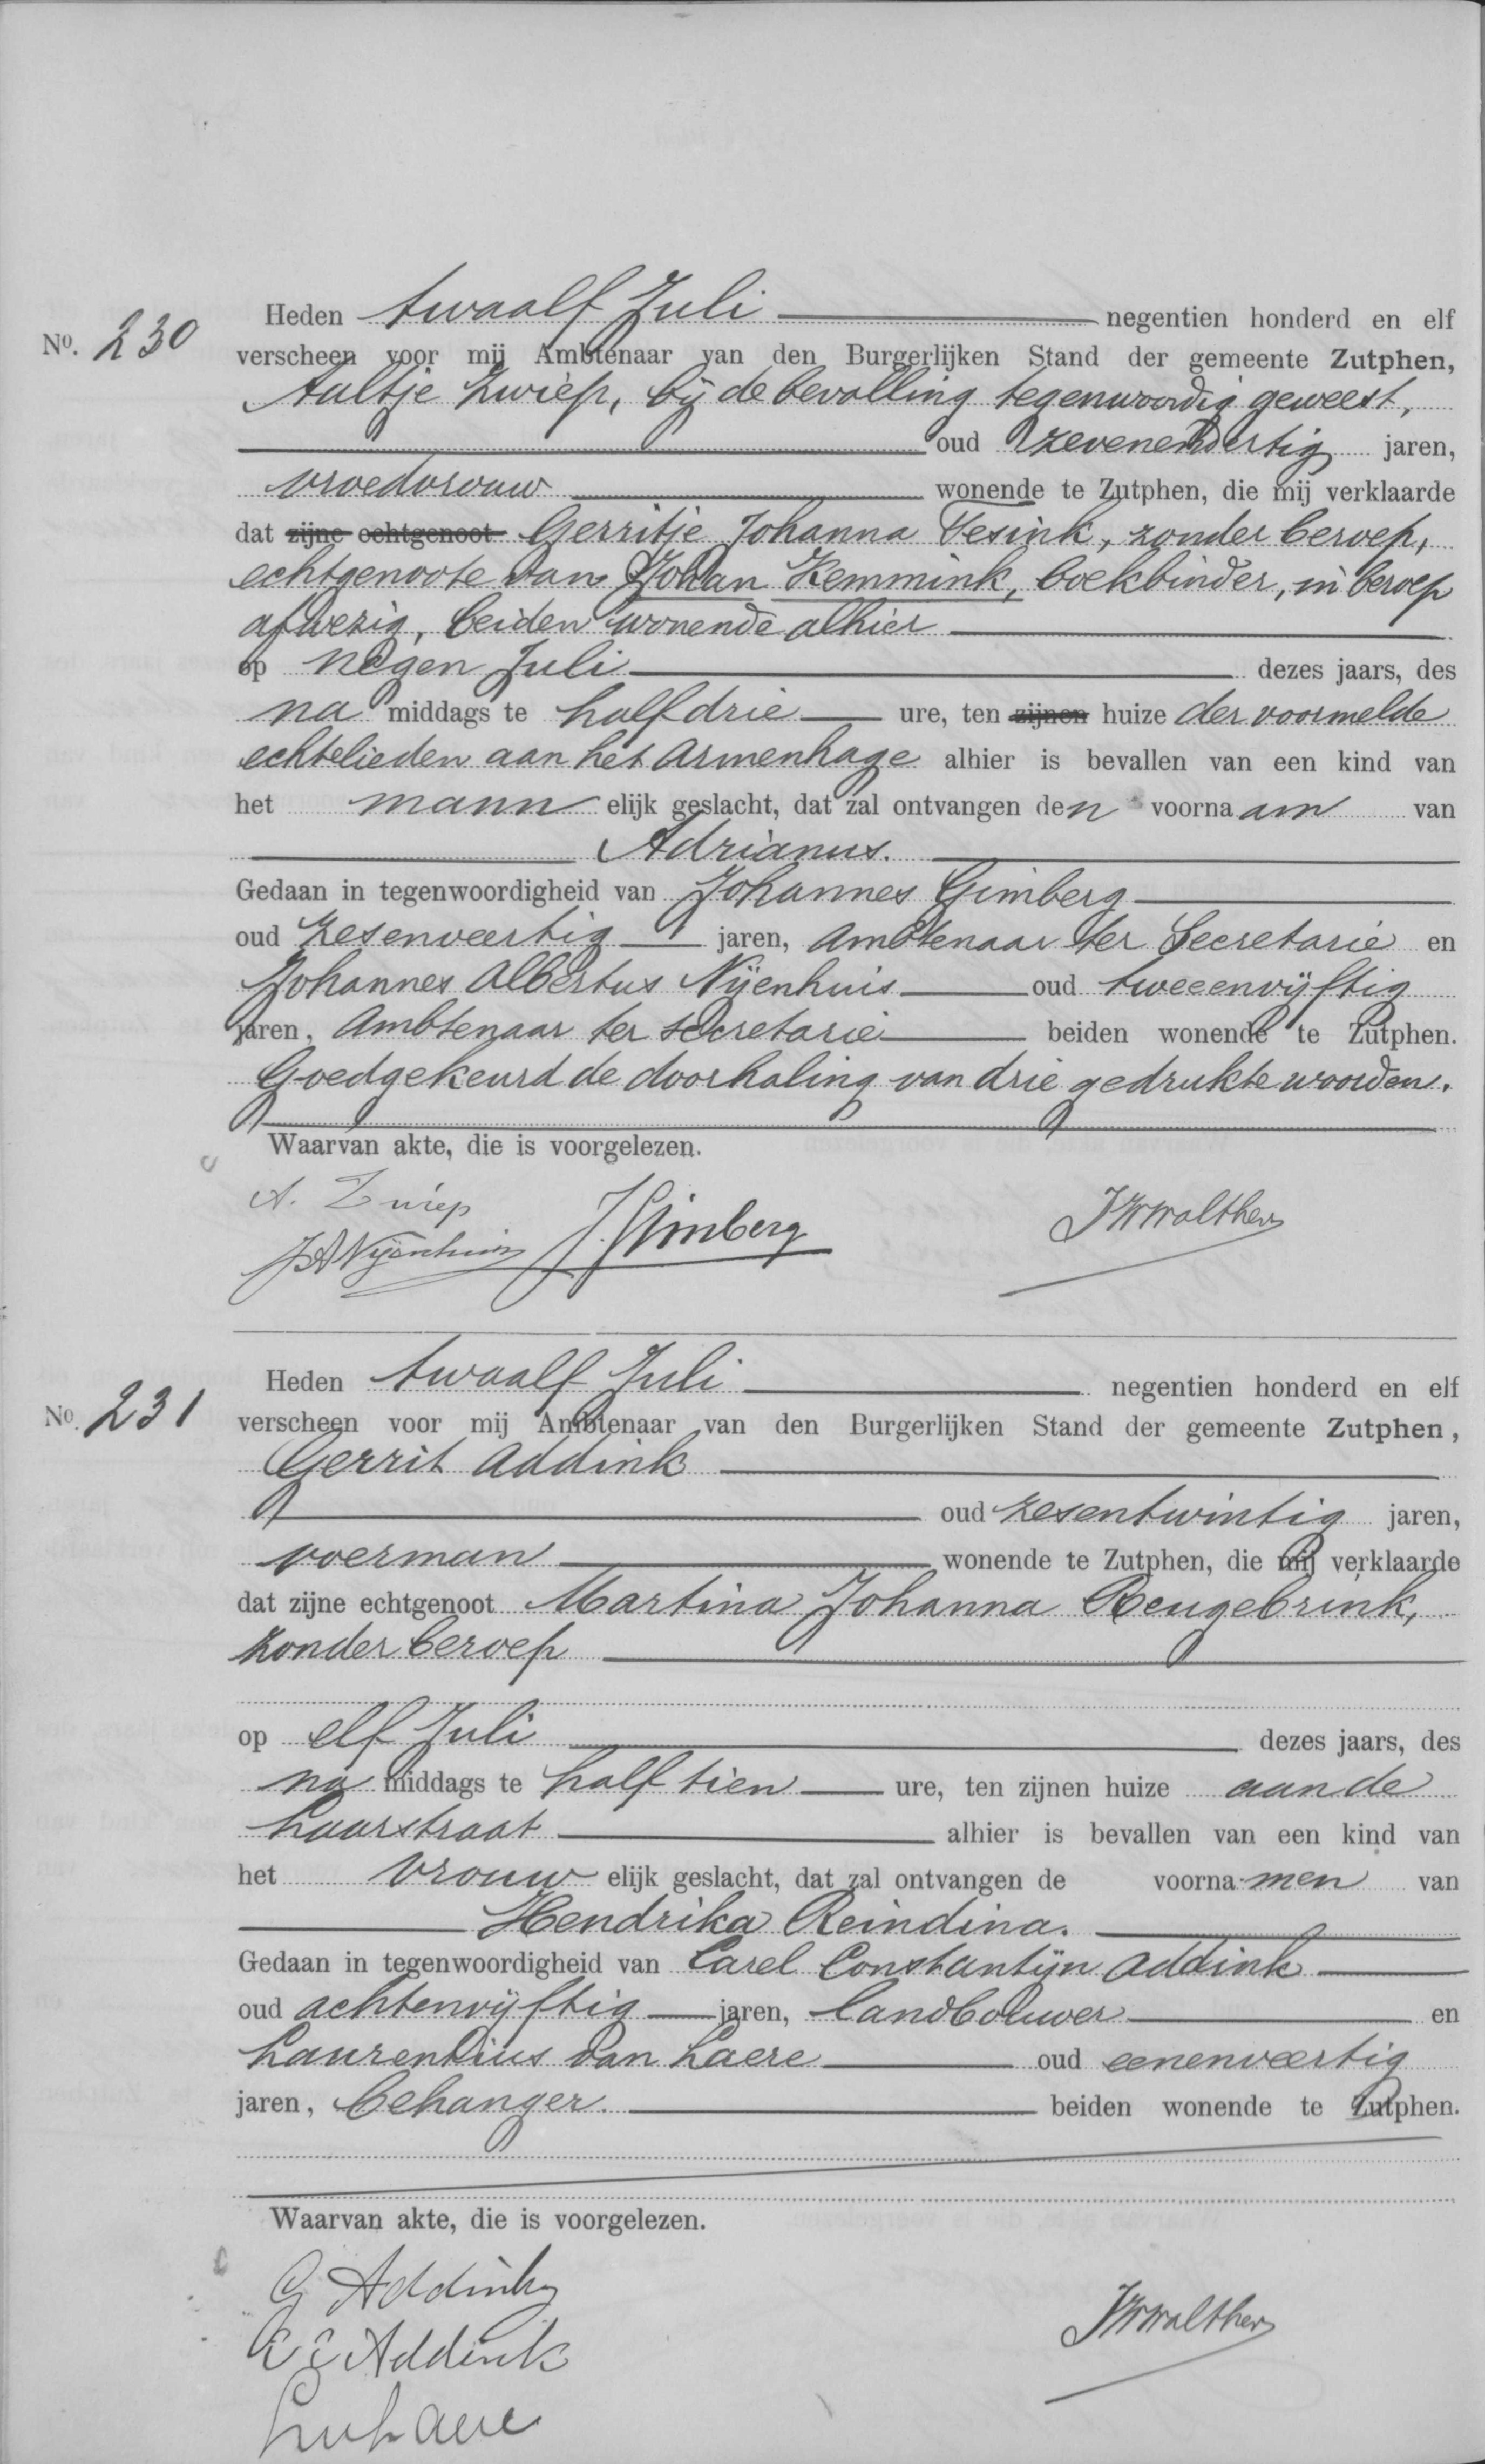 Heden twaalf Juli negentien honderd en elf
No. 230
verscheen voor mij Ambtenaar van den Burgerlijken Stand der gemeente Zutphen,
Aaltje Zwiep, bij de bevalling tegenwoordig geweest,
oud zevenendertig jaren,
vroedvrouw wonende te Zutphen, die mij verklaarde
dat zijne echtgenoot Gerritje Johanna Tesink, zonder beroep,
echtgenoote van Johan Kemmink, boekbinder, in beroep
afwezig, beiden wonende alhier
op negen Juli dezes jaars, des
na middags te half drie ure, ten zijnen huize der voormelde
echtelieden aan het Armenhage alhier is bevallen van een kind van
het mann elijk geslacht, dat zal ontvangen den voornaam van
Adrianus.
Gedaan in tegenwoordigheid van Johannes Gimberg
oud zesenveertig jaren, Ambtenaar ter Secretarie en
Johannes Albertus Nijenhuis oud tweeenvijftig
jaren, Ambtenaar ter secretarie beiden wonende te Zutphen.
Goedgekeurd de doorhaling van drie gedrukte woorden.
Waarvan akte, die is voorgelezen.
A. Zwiep
JANijenhuis J. Gimberg JWWalther
Heden twaalf Juli negentien honderd en elf
No. 231
verscheen voor mij Ambtenaar van den Burgerlijken Stand der gemeente Zutphen,
Gerrit Addink
oud zesentwintig jaren,
voerman wonende te Zutphen, die mij verklaarde
dat zijne echtgenoot Martina Johanna Reugebrink,
zonder beroep
op elf Juli dezes jaars, des
na middags te half tien ure, ten zijnen huize aan de
Laarstraat alhier is bevallen van een kind van
het vrouw elijk geslacht, dat zal ontvangen de voornamen van
Hendrika Reindina.
Gedaan in tegenwoordigheid van Carel Constantijn Addink
oud achtenvijftig jaren, landbouwer en
Laurentius van Laere oud eenenveertig
jaren, behanger. beiden wonende te Zutphen.
Waarvan akte, die is voorgelezen.
G Addink
CC Addink JWWalther
LvLaere